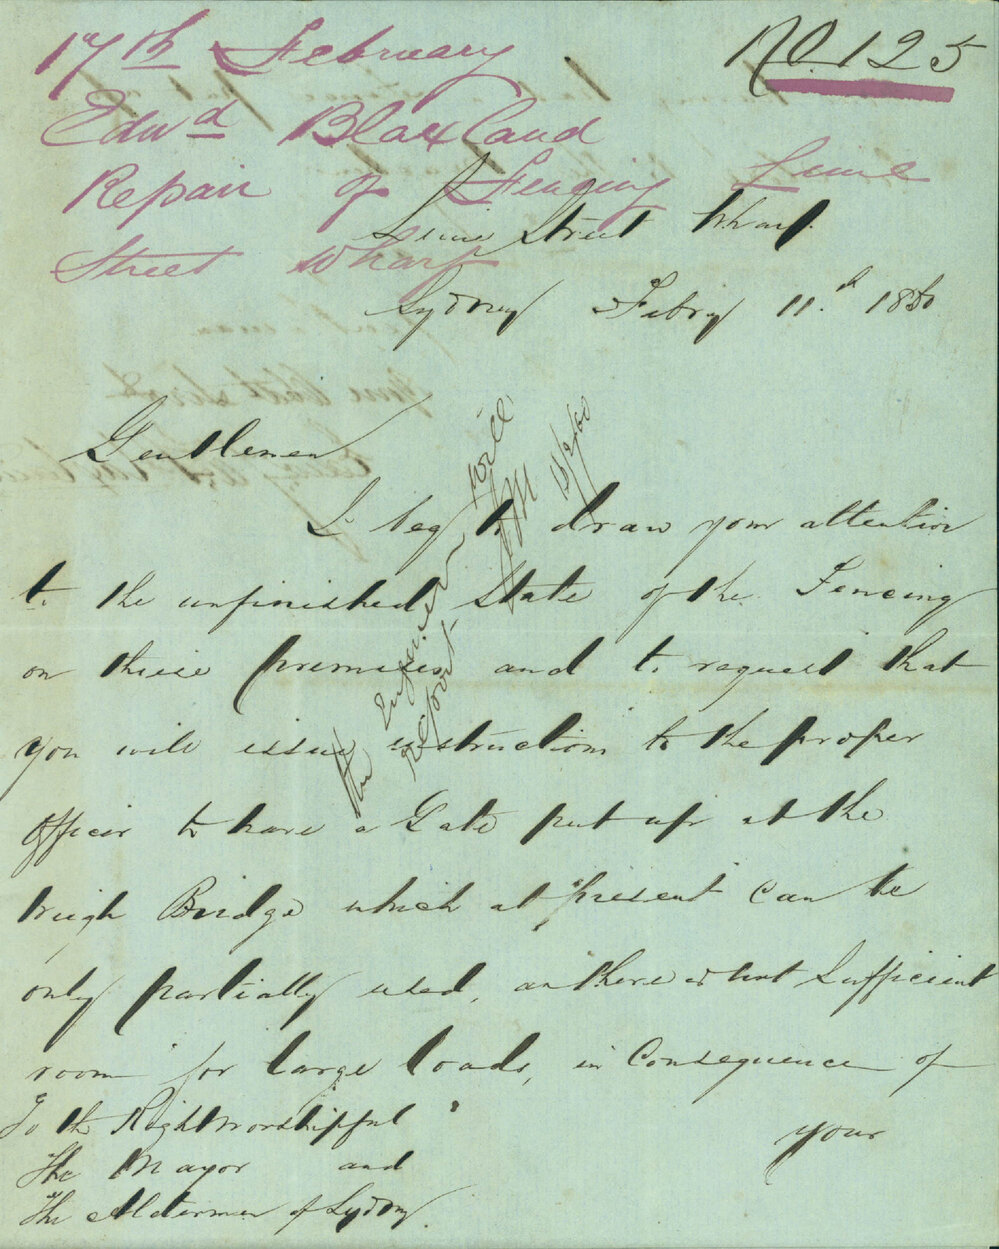 17th February
No. 125
Edwd Blaxland
Repair of Fencing Lime
Street Wharf
Lime Street Wharf
Sydney Febry 11.d 1860
Gentlemen
I beg to draw your attention
to the unfinished State of the Fencing
on these premises and to request that
you will issue instruction to the proper
Officer to have a Gate put up at the
Weigh Bridge which at present can be
only partially used, as there is not Sufficient
room for large loads, in Consequence of
your
To the Right Worshipful
The Mayor and
The Aldermen of Sydney.
The Engineer will
report
13/2/60